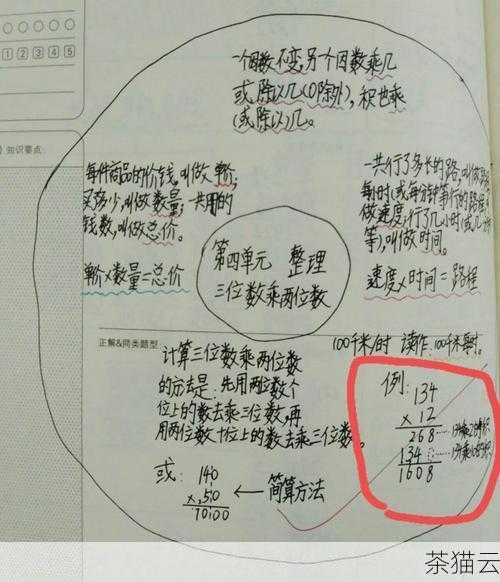 1 2 3 4 5
知识要点:
一个因数不变,另个因数乘几
或除以几(0除外),积也乘
(或除以)几。
每件商品的价钱,叫做单价;
买多少,叫做数量;一共用的
钱数,叫做总价。
单价×数量=总价
一共行了多长的路,叫做
每小时(或每分钟等)行的路程
做速度,行了几小时(或几
等),叫做时间。
速度×时间=路程
第四单元 整理
三位数乘两位数
正解&同类题型
100千米/时 读作:100千米每时.
计算三位数乘两位数
的方法是:先用两位数个
位上的数去乘三位数,再
用两位数十位上的数去乘三位数。
或: 140
×50
7000
← 简算方法
例: 134
×12
268
134
1608
茶猫云